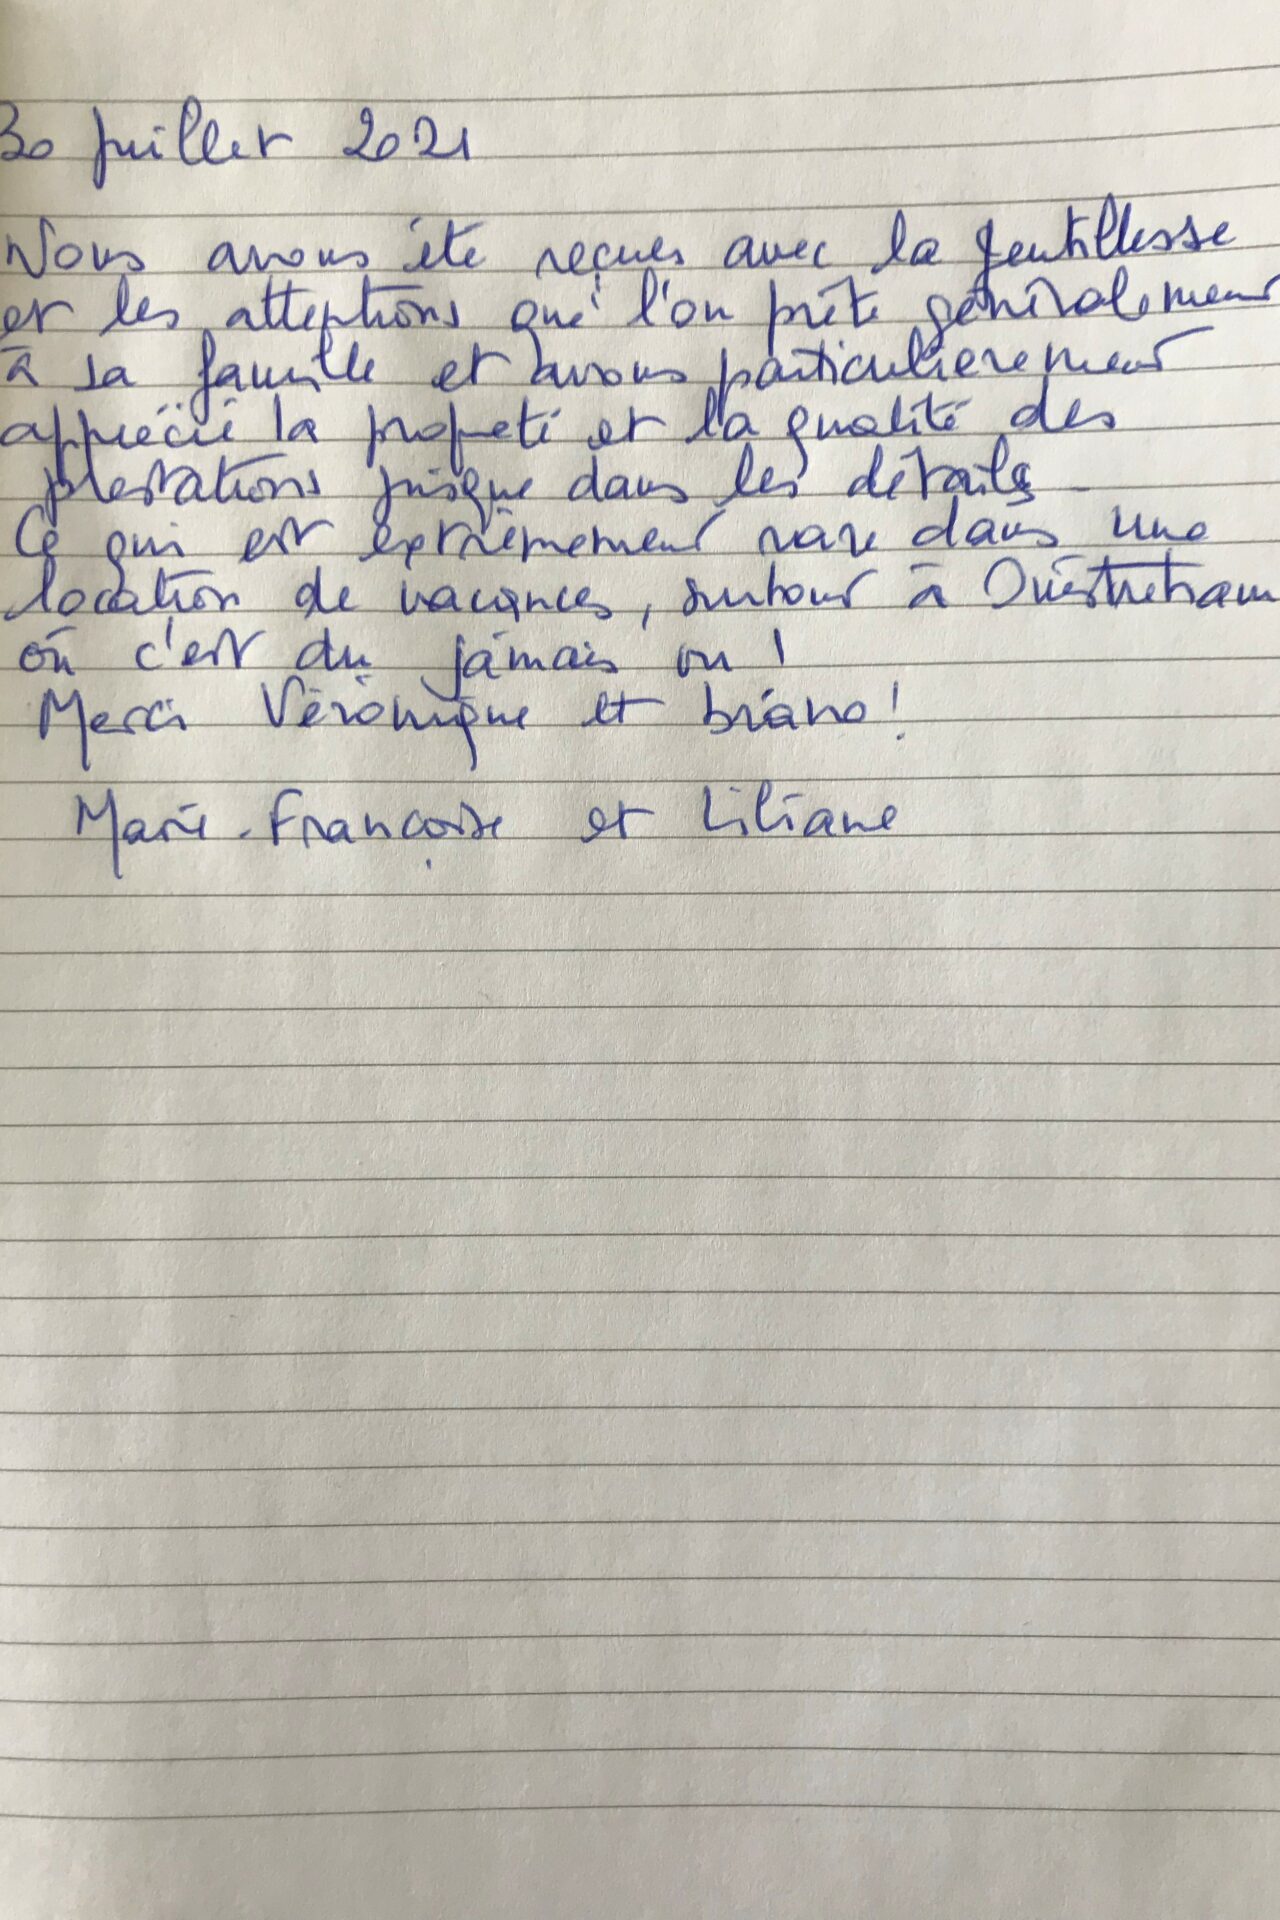 30 juillet 2021
Nous avons été reçues avec la gentillesse
et les attentions que l'on prête généralement
à sa famille et avons particulièrement
apprécié la propeté et la qualité des
prestations jusque dans les détails
Ce qui est extrêmement rare dans une
location de vacances, surtout à Ouistreham
où c'est du jamais vu !
Merci Véronique et bruno !
Marie-Françoise et Liliane